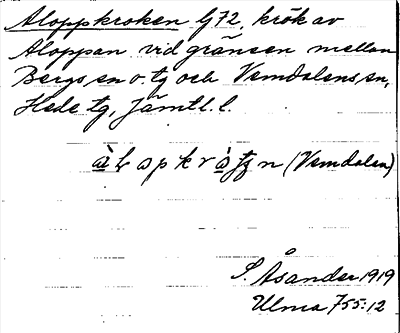 Aloppkroken G72, krök av
Aloppan vid gränsen mellan
Bergs sn o. tg och Vemdalens sn,
Hede tg, Jämtl. l.
(Vemdalen)
S. Åsander 1919
Ulma 755:12